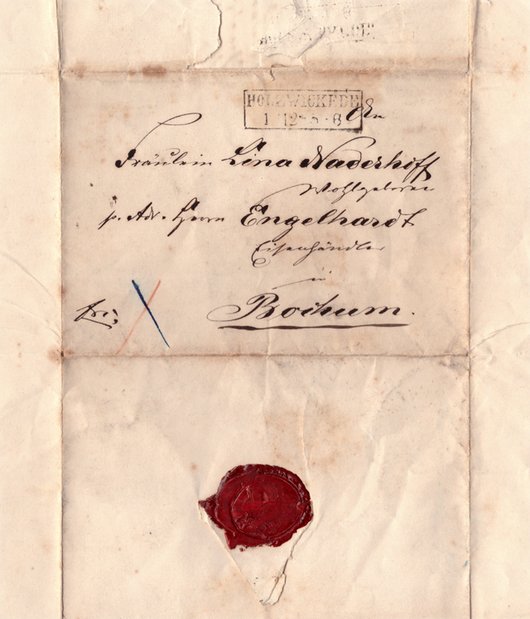 HOLZWICKEDE
1 12 5-6
An
Fräulein Lina Naderhoff
Wohlgeboren
p. Adr. Herrn Engelhardt
Eisenhändler
in
frei.
Bochum.